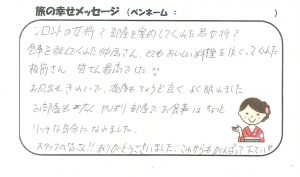 旅の幸せメッセージ (ペンネーム： )
フロントの女将？部屋を案内してくれた若女将？
食事を運んでくれた仲居さん、とてもおいしい料理を作ってくれた
板前さん 皆さん最高でした
お風呂もきれいで、湯加もちょうど良く よく眠れました
お部屋も 広く、やっぱり部屋でのお食事は ちょっと
リッチな気分になれました。
スタッフの皆さん!! ありがとうございました。これからもがんばって下さい!!